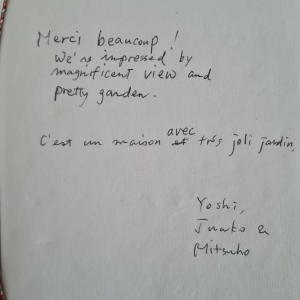 Merci beaucoup !
We're impressed by
magnificent view and
pretty garden.
C'est un maison avec très joli jardin.
Yoshi,
Junko &
Mitsuho